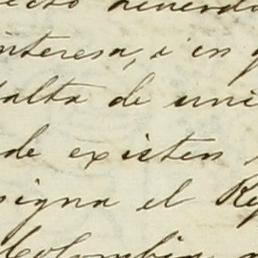 interesa, i en
falta de uni
de existen
signa el Re
Colombia